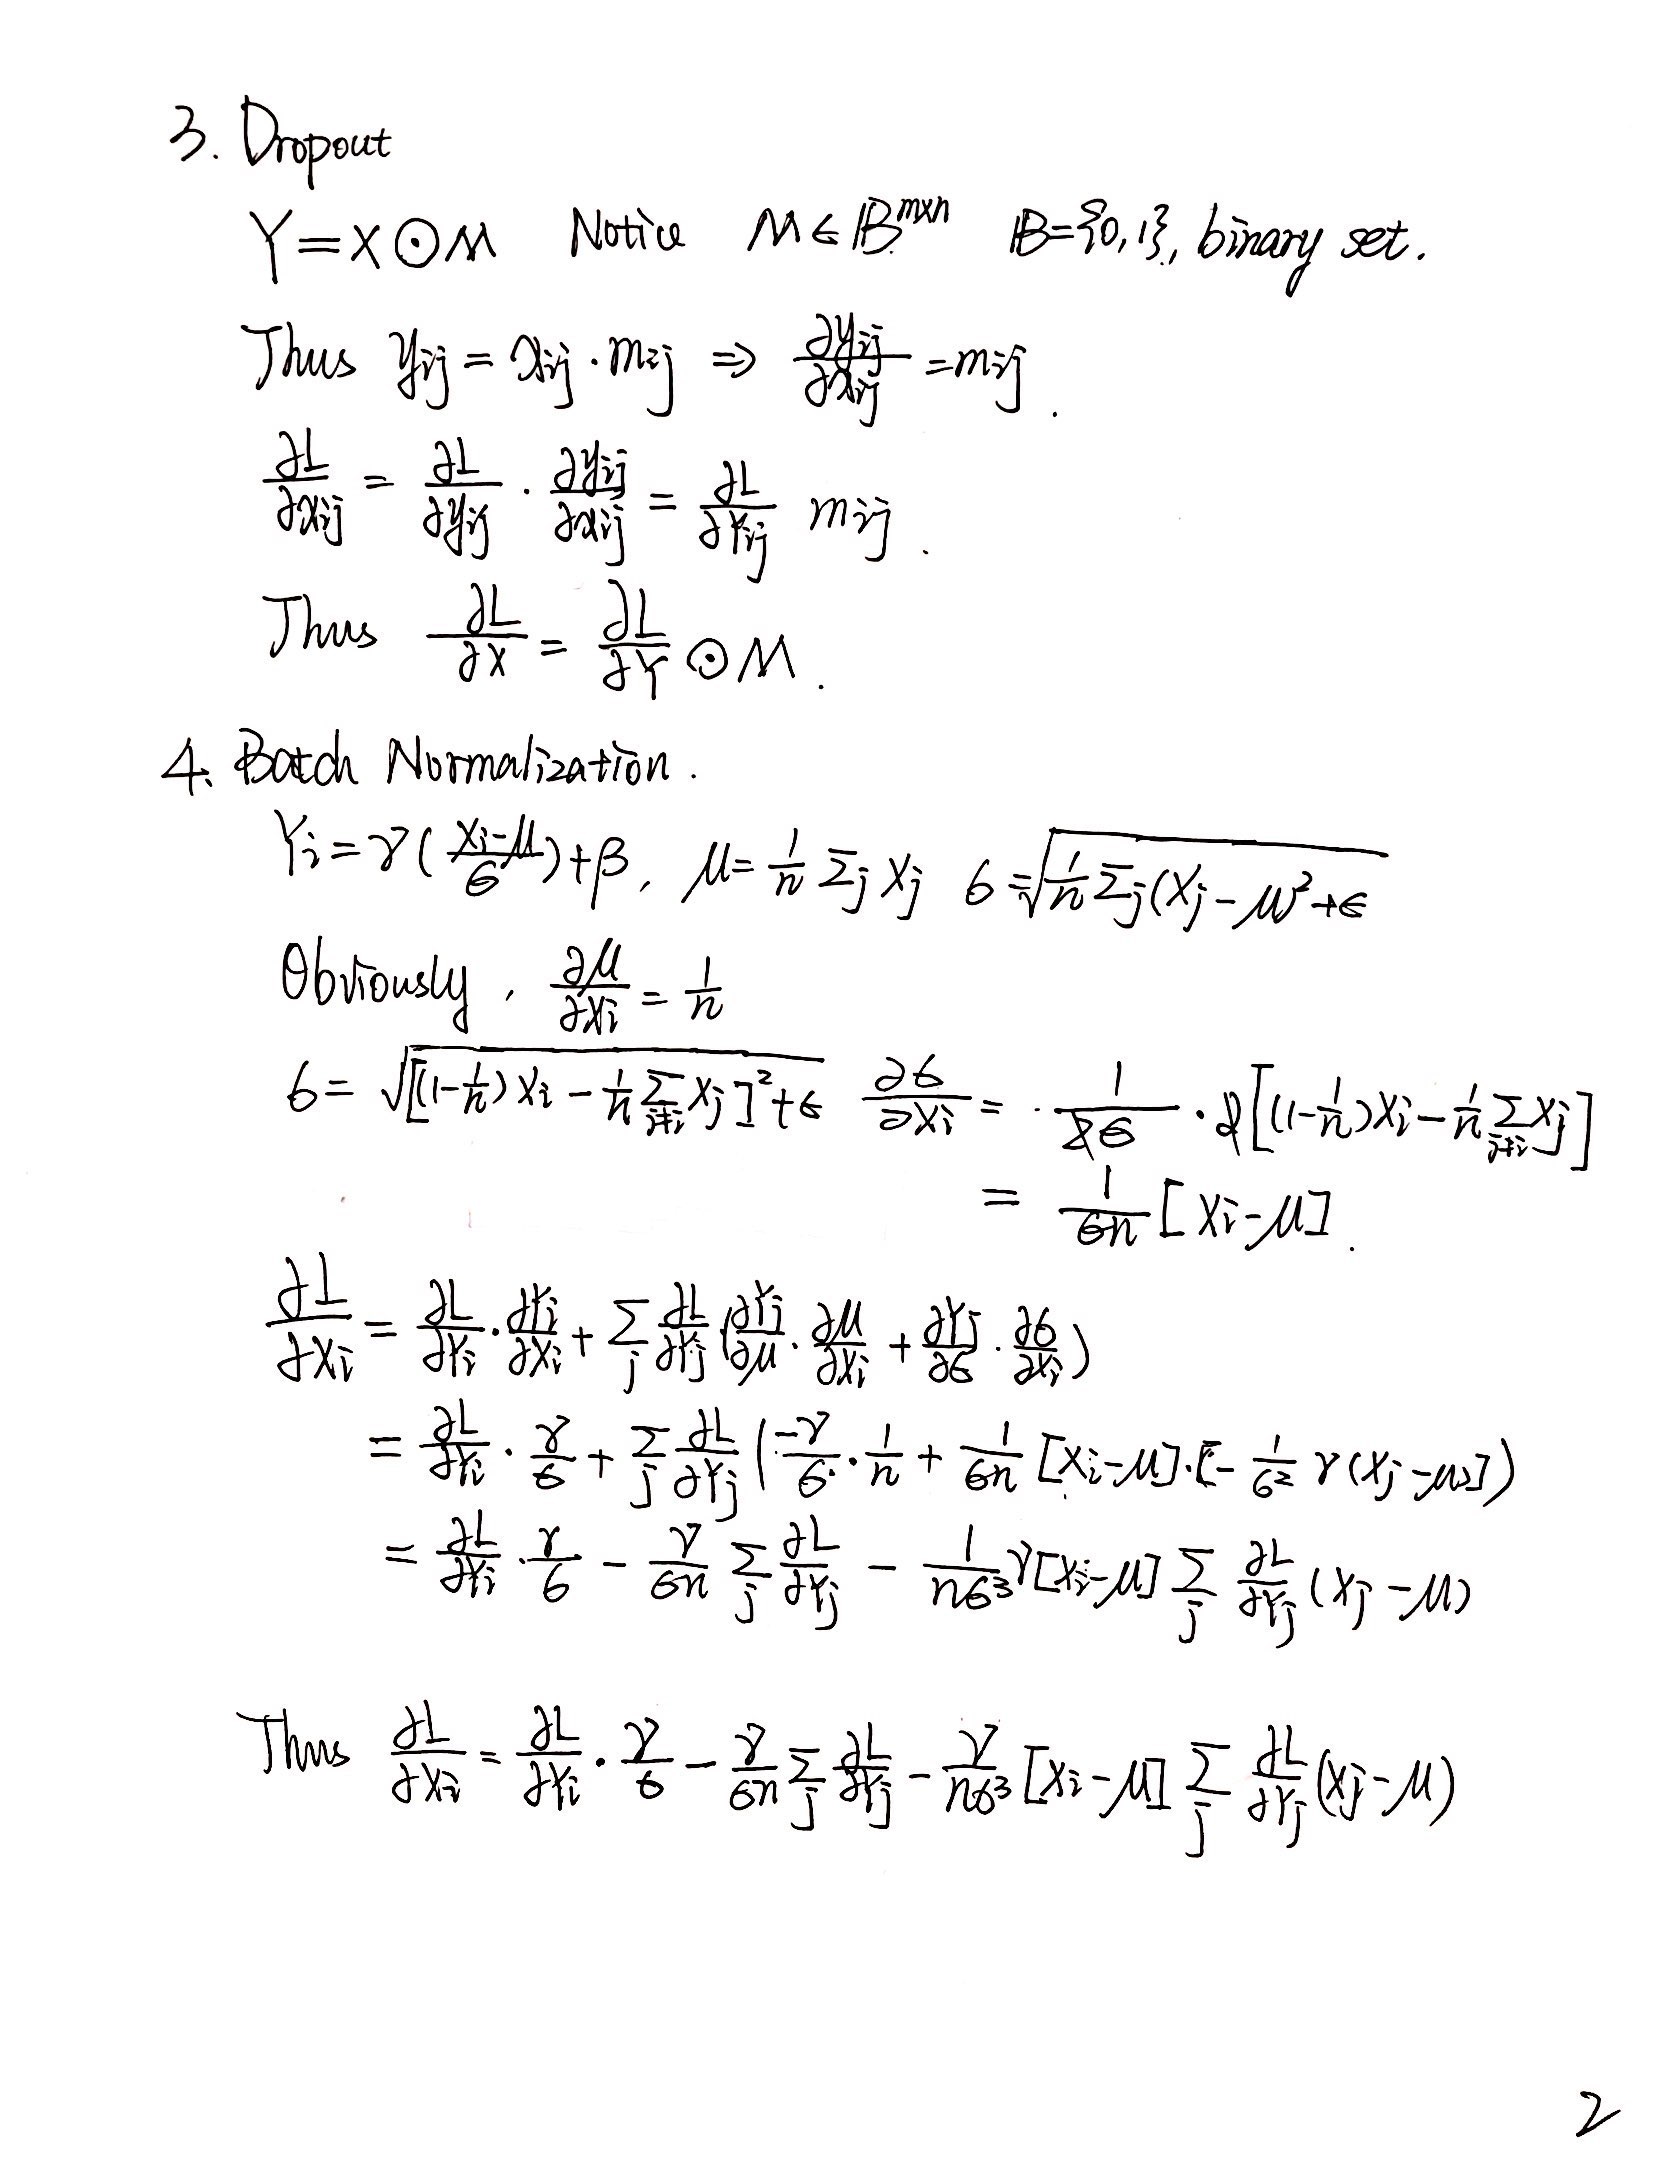 3. Dropout
Y = X ⊙ M   Notice   M ∈ 𝔹^{m×n}   𝔹 = {0, 1}, binary set.
Thus y_{ij} = x_{ij} · m_{ij} ⇒ ∂y_{ij}/∂x_{ij} = m_{ij}.
∂L/∂x_{ij} = ∂L/∂y_{ij} · ∂y_{ij}/∂x_{ij} = ∂L/∂Y_{ij} m_{ij}.
Thus ∂L/∂X = ∂L/∂Y ⊙ M.
4. Batch Normalization.
Y_i = γ((X_i − μ)/σ) + β, μ = 1/n Σ_j X_j   σ = √(1/n Σ_j (X_j − μ)² + ϵ)
Obviously, ∂μ/∂X_i = 1/n
σ = √([(1 − 1/n) X_i − 1/n Σ_{j≠i} X_j]² + ϵ)   ∂σ/∂X_i = · 1/(2σ) · 2[(1 − 1/n) X_i − 1/n Σ_{j≠i} X_j]
= 1/(σn) [X_i − μ].
∂L/∂X_i = ∂L/∂Y_i · ∂Y_i/∂X_i + Σ_j ∂L/∂Y_j (∂Y_j/∂μ · ∂μ/∂X_i + ∂Y_j/∂σ · ∂σ/∂X_i)
= ∂L/∂Y_i · γ/σ + Σ_j ∂L/∂Y_j (−γ/σ · 1/n + 1/(σn) [X_i − μ] · [− 1/σ² γ (X_j − μ)])
= ∂L/∂Y_i · γ/σ − γ/(σn) Σ_j ∂L/∂Y_j − 1/(nσ³) γ [X_i − μ] Σ_j ∂L/∂Y_j (X_j − μ)
Thus ∂L/∂X_i = ∂L/∂Y_i · γ/σ − γ/(σn) Σ_j ∂L/∂Y_j − γ/(nσ³) [X_i − μ] Σ_j ∂L/∂Y_j (X_j − μ)
2